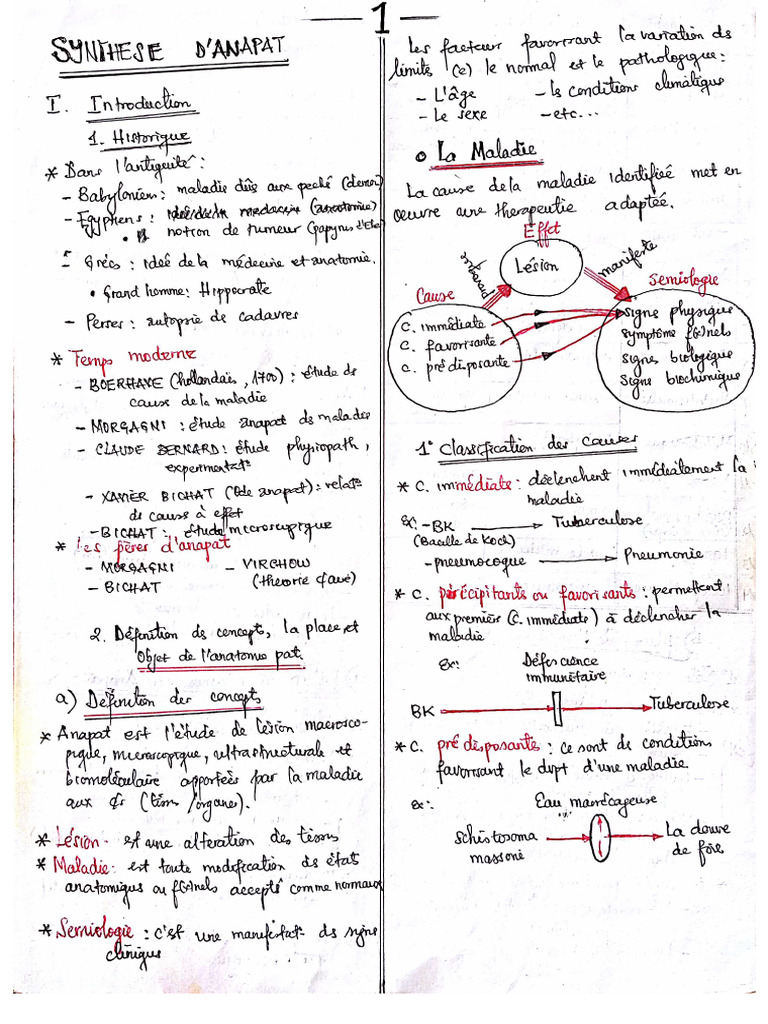 1
SYNTHESE D'ANAPAT
I. Introduction
1. Historique
* Dans l'antiquité :
- Babylonien : maladie dûs aux peché (demon)
- Egyptiens : idée de la medecine (anatomie)
• notion de tumeur (papyrus d'Eber)
- Grecs : idée de la médecine et anatomie.
• Grand homme : Hippocrate
- Perses : autopsie de cadavres
* Temps moderne
- BOERHAVE (hollandais, 1700) : étude ds
cause de la maladie
- MORGAGNI : étude anapat ds maladie
- CLAUDE BERNARD : étude physiopath,
- XAVIER BICHAT (anapat) : relat°
de causes à effet
- BICHAT : étude microscopique
* Les pères d'anapat
- MORGAGNI - VIRCHOW
- BICHAT (theorie
2. Définition ds concepts, la place et
Objet de l'anatomie pat.
a) Définition des concepts
* Anapat est l'étude de lésion macrosco-
pique, microscopique, ultrastructurale et
biomoléculaire apportées par la maladie
aux (tissus/organe).
* Lésion - est une alteration des tissus
* Maladie : est toute modification ds états
anatomiques ou f(°)nels acceptés comme normaux
* Semiologie : c'est une manifestat° ds signe
cliniques
Les facteurs favorisant la variation ds
limites (e) le normal et le pathologique :
- L'âge - ls conditions climatique
- Le sexe - etc...
o La Maladie
La cause de la maladie identifieé met en
oeuvre une therapeutie adaptée.
Effet
Lésion
provoque
manifeste
Cause
Semiologie
C. immédiate
C. favorisante
C. prédisposante
Signe physique
Symptôme f(°)nels
Signe biologique
Signe biochimique
1° Classification des causes
* C. immédiate : déclenchent immédiatement la
maladie
ex : - BK Tuberculose
(Bacille de Koch)
- pneumocoque Pneumonie
* C. précipitants ou favorisants : permettent
aux première (C. immédiate) à déclencher la
maladie
Ex : Déficience
immunitaire
BK Tuberculose
* C. prédisposante : ce sont de conditions
favorisant le dvpt d'une maladie.
ex : Eau marécageuse
Schistosoma La douve
massoni de foie